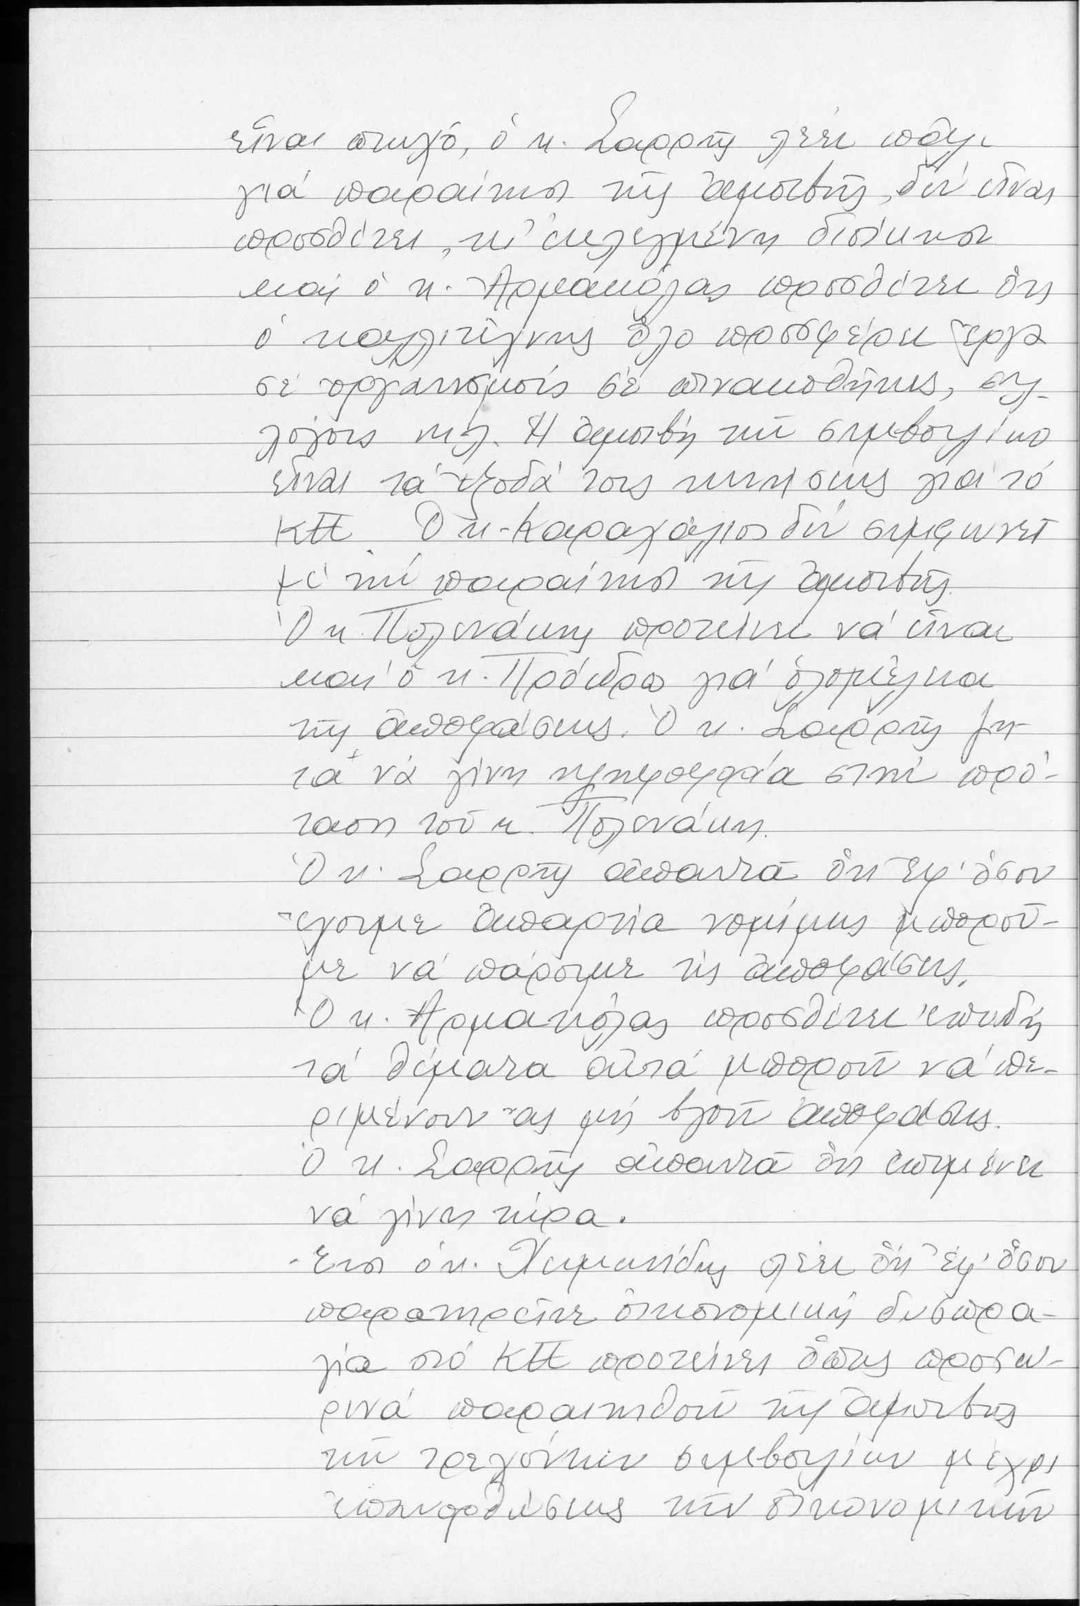 εἶναι πτωχό, ὁ κ. Σαρρῆς λέει πάλι
γιά παραίτηση τῆς ἀμοιβῆς, δέν εἶναι
προσθέτει, κι' ἐκλεγμένη διοίκηση
καί ὁ κ. Ἀρμακόλας προσθέτει ὅτι
ὁ καλλιτέχνης ὅλο προσφέρει ἔργα
σέ ὀργανισμούς σέ πινακοθῆκες, συλ-
λόγους κτλ. Ἡ ἀμοιβή τῶν συμβούλων
εἶναι τά ἔξοδά τους κινήσεως γιά τό
ΚΠ Ὁ κ. Καραχάλιος δέν συμφωνεῖ
μέ τήν παραίτηση τῆς ἀμοιβῆς.
Ὁ κ. Πολενάκης προτείνει νά εἶναι
καί ὁ κ. Πρόεδρος γιά ὁλομέλεια
τῆς ἀποφάσεως. Ὁ κ. Σαρρῆς ζη-
τᾶ νά γίνη ψηφοφορία στήν πρό-
ταση τοῦ κ. Πολενάκη.
Ὁ κ. Σαρρῆς ἀπαντᾶ ὅτι ἐφ' ὅσον
ἔχουμε ἀπαρτία νομίμως μποροῦ-
με νά πάρουμε τίς ἀποφάσεις.
Ὁ κ. Ἀρμακόλας προσθέτει ἐπειδή
τά θέματα αὐτά μποροῦν νά πε-
ριμένουν ἄς μή βγοῦν ἀποφάσεις.
Ὁ κ. Σαρρῆς ἀπαντᾶ ὅτι ἐπιμένει
νά γίνει τώρα.
Ἔτσι ὁ κ. λέει ὅτι ἐφ' ὅσον
παρατηρεῖται οἰκονομική δυσπρα-
γία στό ΚΠ προτείνει ὅπως προσω-
ρινά παραιτηθοῦν τῆς ἀμοιβῆς
τῶν τρεχόντων συμβουλίων μέχρι
τῶν οἰκονομικῶν